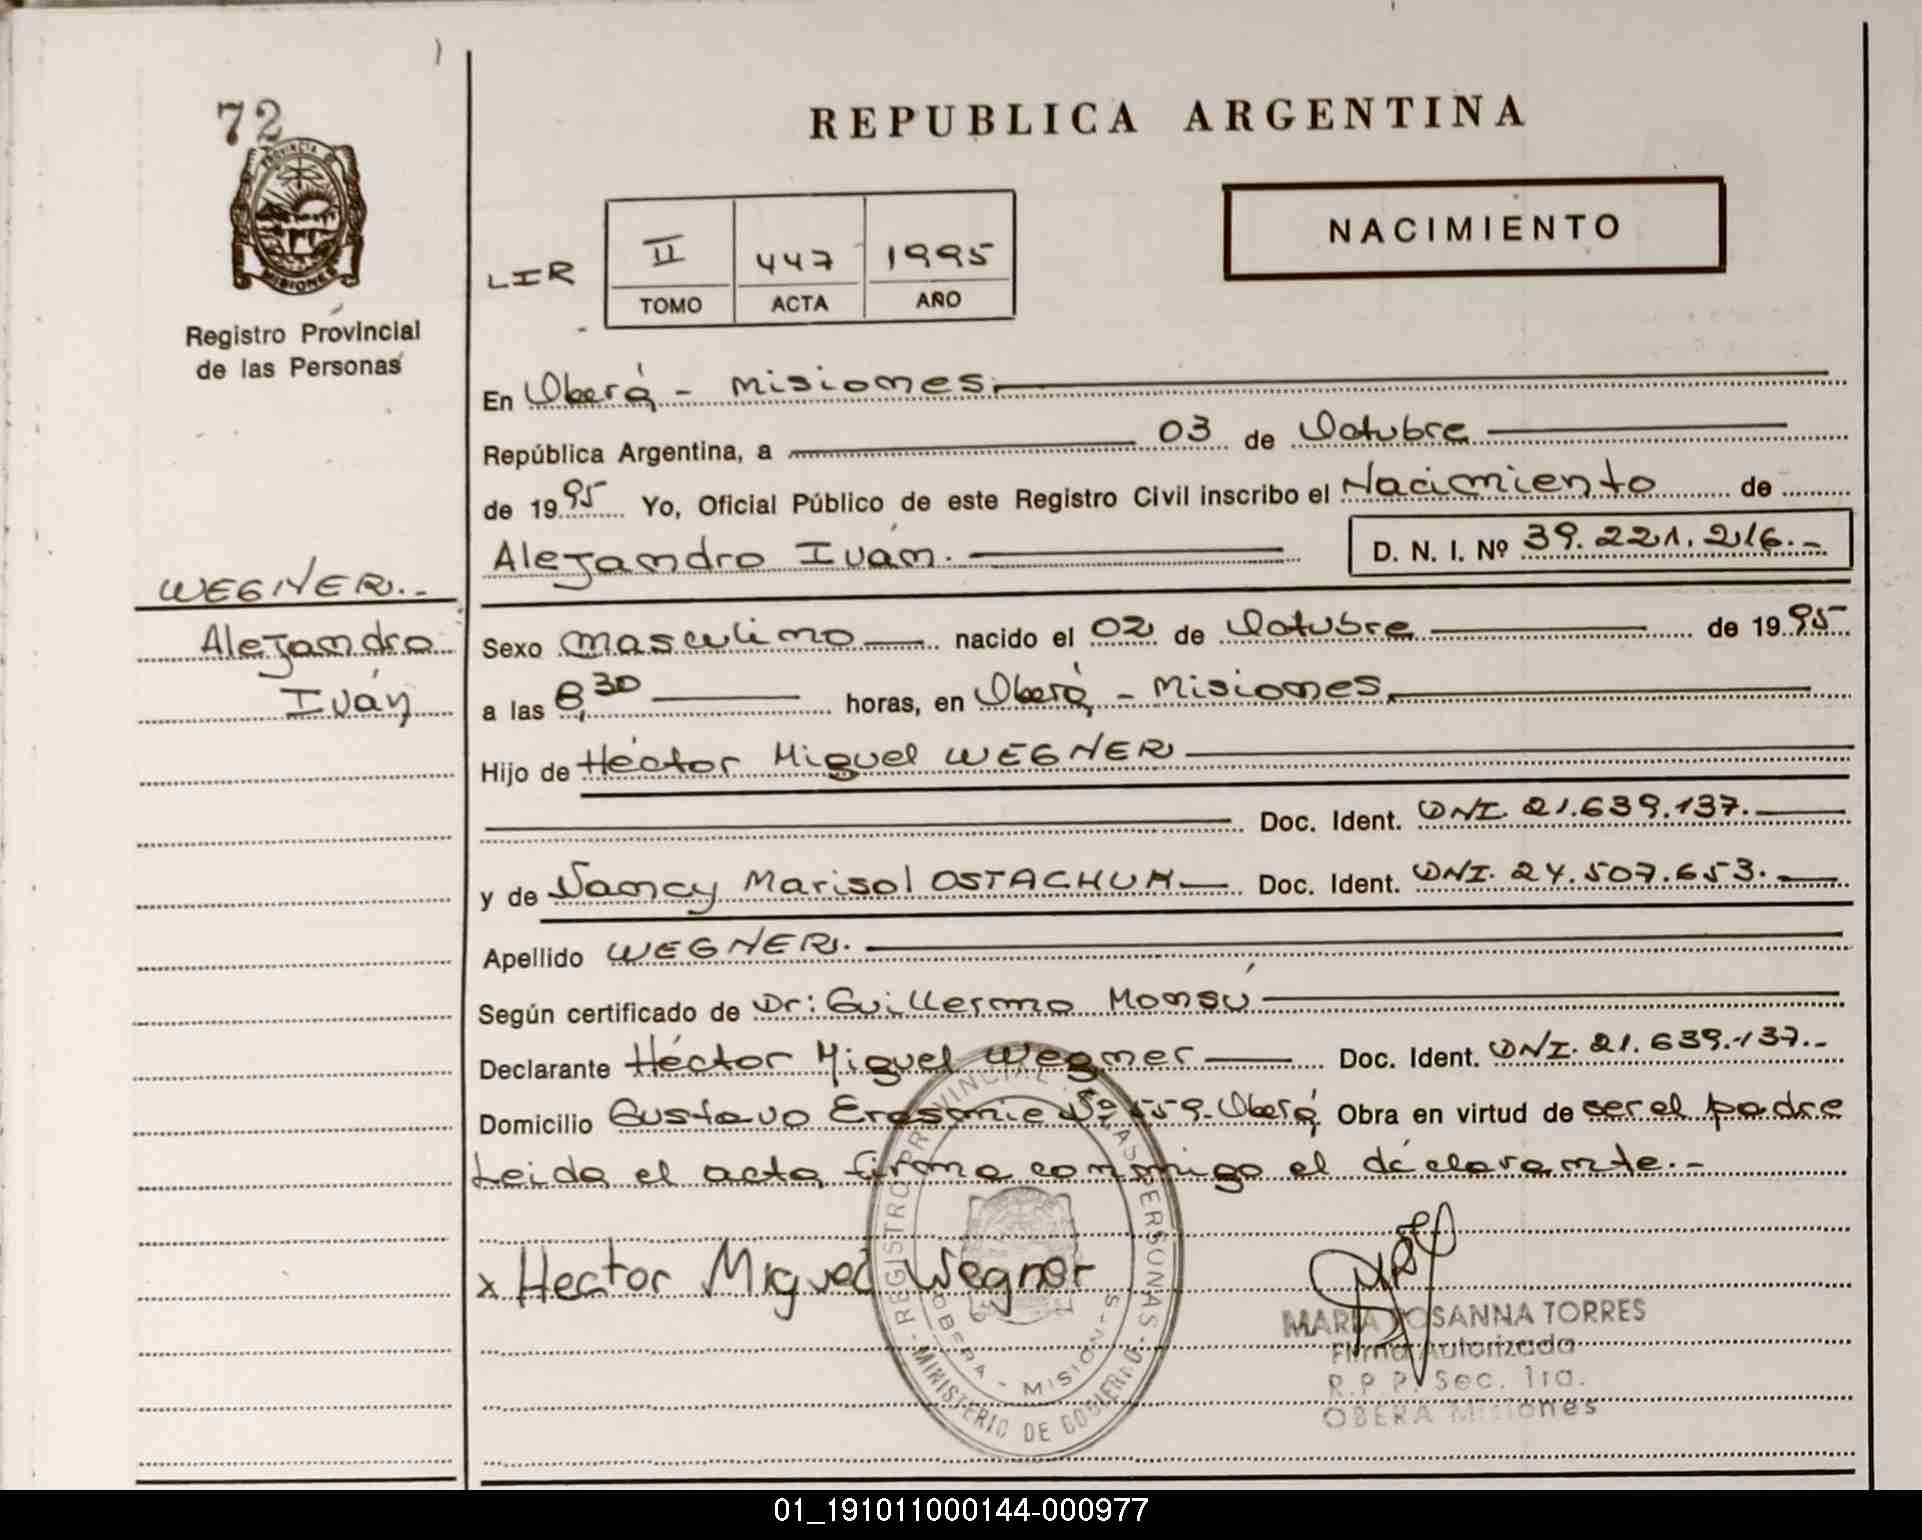 72
PROVINCIA DE
MISIONES
Registro Provincial
de las Personas
REPUBLICA ARGENTINA
NACIMIENTO
LIR
II 447 1995
TOMO ACTA AÑO
En Oberá - Misiones.
República Argentina, a 03 de Octubre
de 1995 Yo, Oficial Público de este Registro Civil inscribo el Nacimiento de
Alejandro Iván. D. N. I. Nº 39.221.216.-
WEGNER.-
Alejandro
Iván
Sexo masculino nacido el 02 de Octubre de 1995
a las 8,30 horas, en Oberá - Misiones.
Hijo de Héctor Miguel WEGNER
Doc. Ident. DNI. 21.639.137.
y de Nancy Marisol OSTACHUK Doc. Ident. DNI. 24.507.653.-
Apellido WEGNER.
Según certificado de Dr: Guillermo Monsú
Declarante Héctor Miguel Wegner Doc. Ident. DNI. 21.639.137.-
Domicilio Gustavo Nº 559-Oberá Obra en virtud de ser el padre
Leida el acta firma conmigo el declarante.-
x Hector Miguel Wegner
REGISTRO PROVINCIAL DE LAS PERSONAS
OBERA - MISIONES
MINISTERIO DE GOBIERNO
MARIA ROSANNA TORRES
Firma Autorizada
R.P.P. Sec. 1ra.
OBERA Misiones
01_191011000144-000977